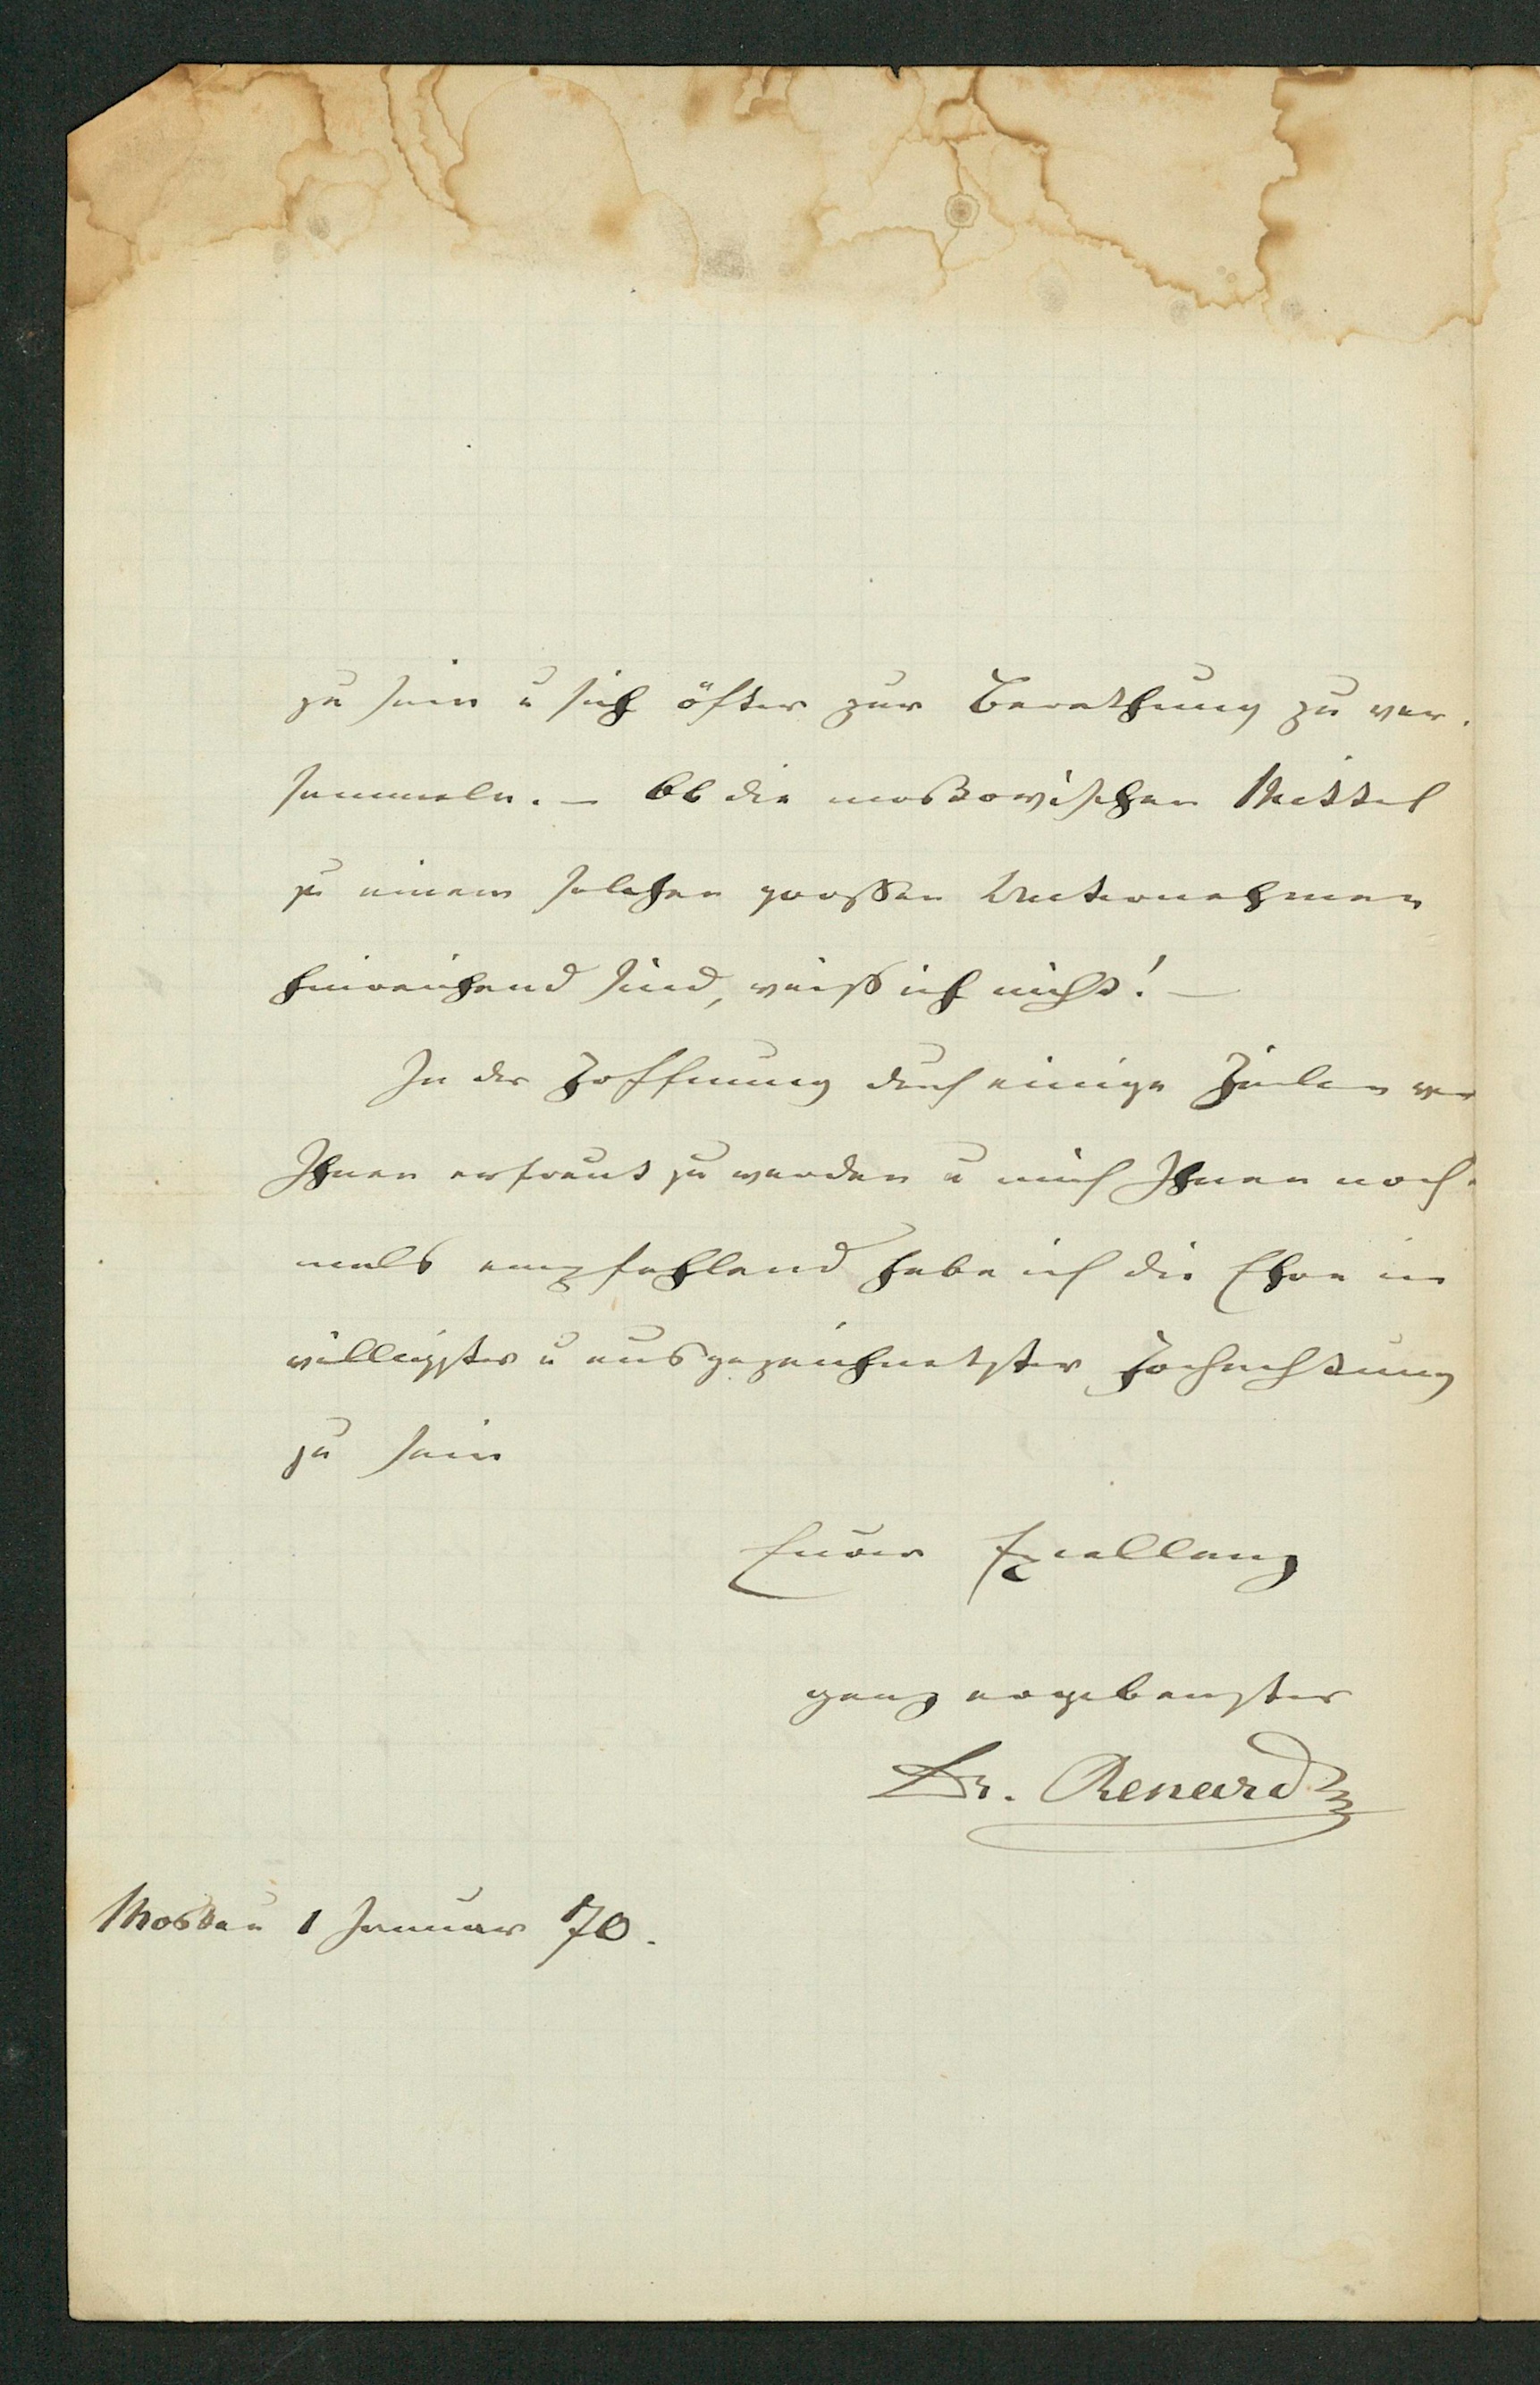 zu sein u sich öfter zur Berathung zu ver-
sammeln. — Ob die moskowischen Mittel
zu einem solchen grossen Unternehmen
hinreichend sind, weiss ich nicht! —
In der Hoffnung durch einige Zeilen von
Ihnen erfreut zu werden u mich Ihnen noch-
mals empfehlend habe ich die Ehre in
willigster u ausgezeichnetster Hochachtung
zu sein
Eurer Excellenz
ganz ergebenster
Dr. Renard
Moskau 1 Januar 70.